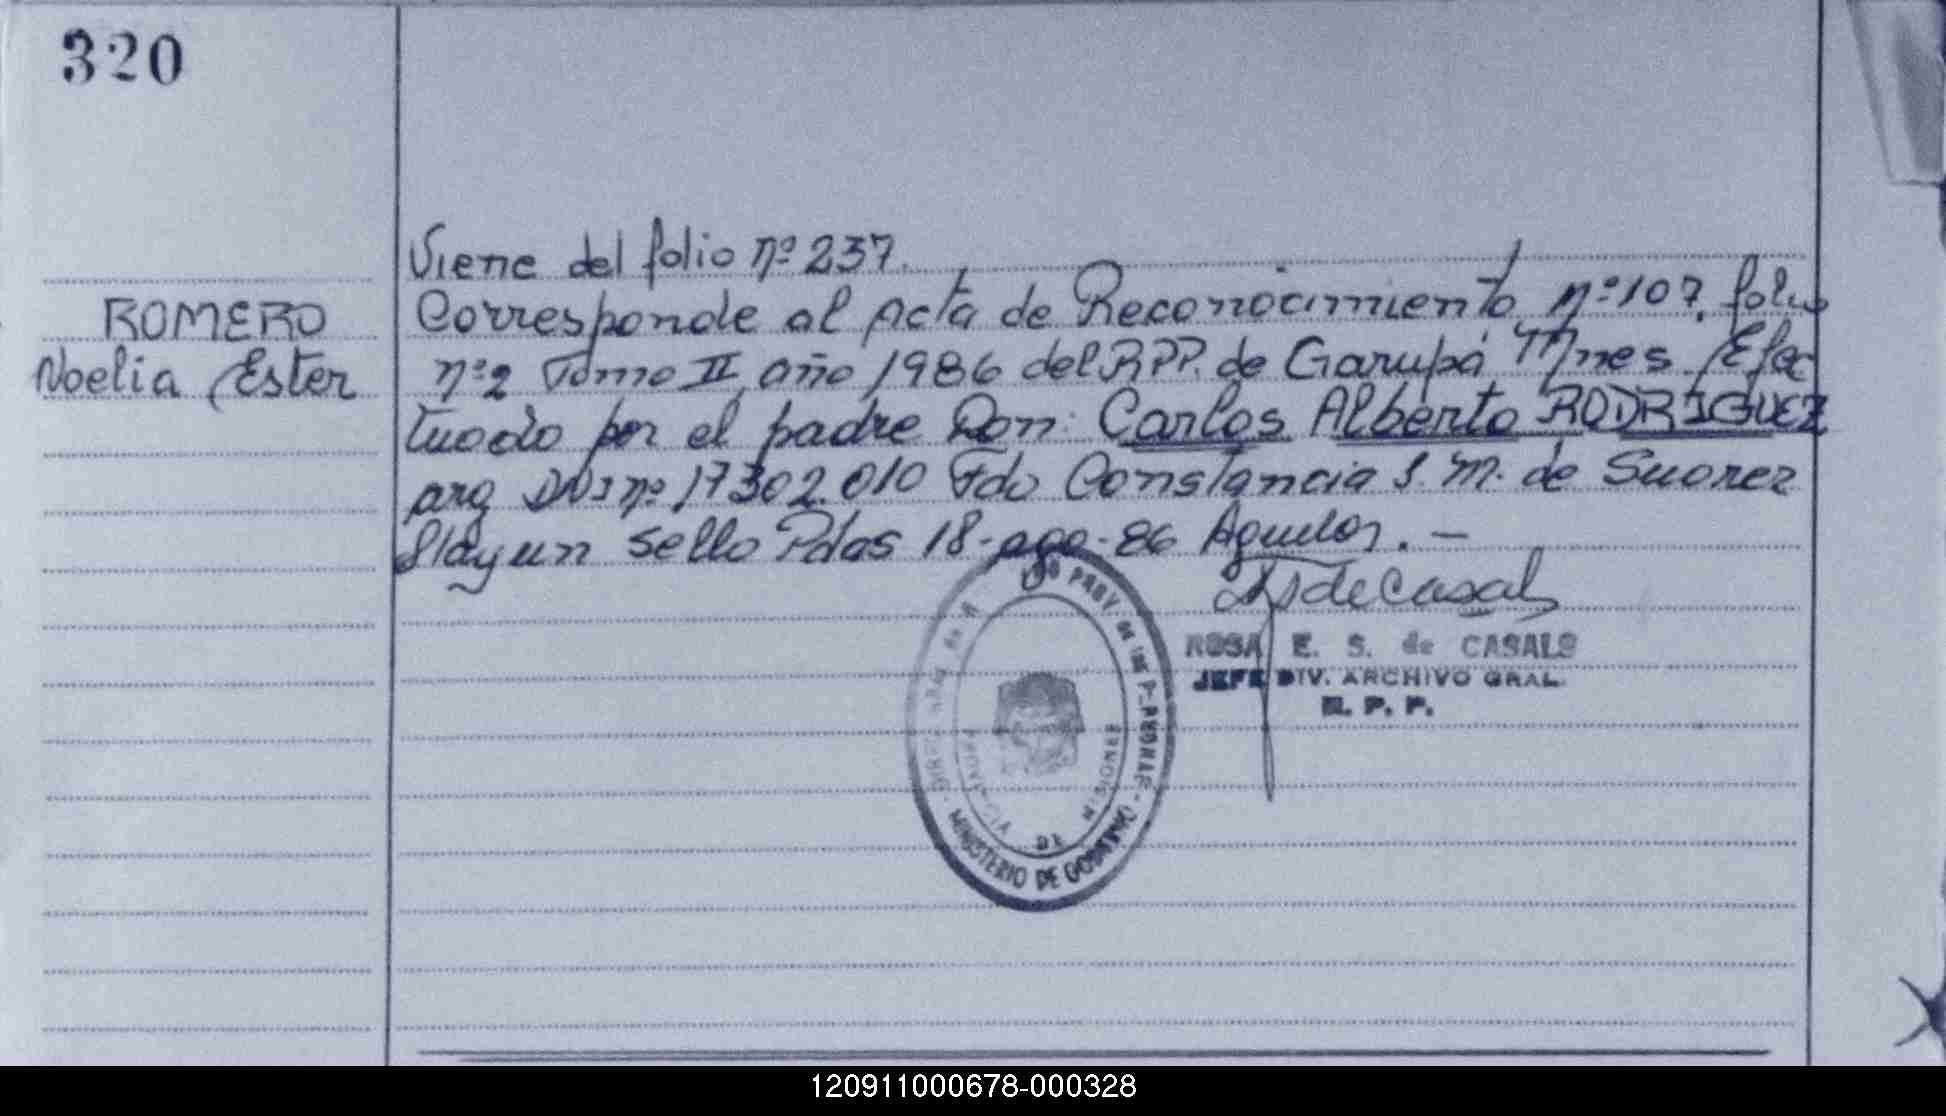 320
ROMERO
Noelia Ester
Viene del folio nº 237.
Corresponde al Acta de Reconocimiento nº 107, folio
nº 2 Tomo II año 1986 del RPP. de Garupá Mnes. Efec
tuado por el padre Don: Carlos Alberto RODRIGUEZ
arg DNI nº 17302.010 Fdo Constancia S. M. de Suarez
Hay un sello Pdas 18-ago-86 Aguelos. —
de Casals
ROSA E. S. de CASALS
JEFE DIV. ARCHIVO GRAL.
R. P. P.
PROV. DE LAS P.
MINISTERIO DE GOBIERNO
PROVINCIA DE MISIONES
120911000678-000328